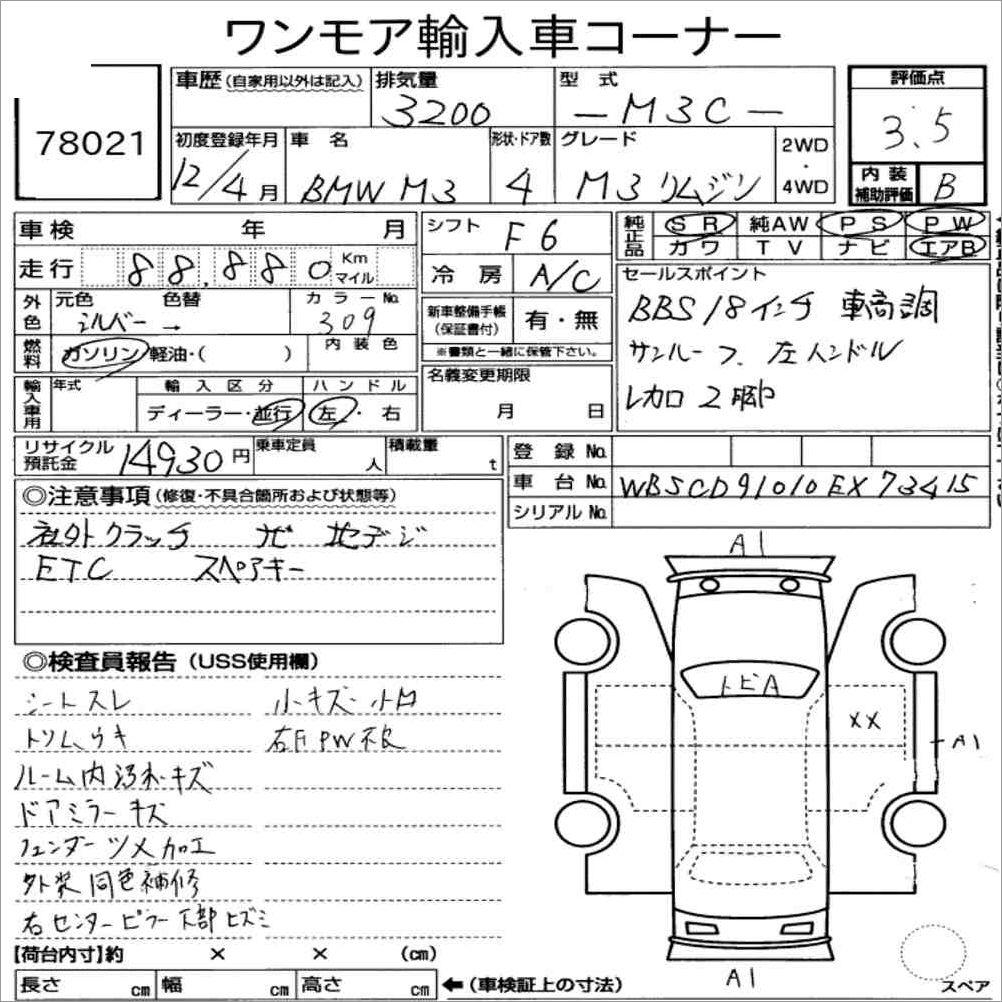 ワンモア輸入車コーナー
78021
車歴(自家用以外は記入) 排気量 3200 型式 -M3C- 評価点 3.5
初度登録年月 12/4月 車名 BMW M3 形状・ドア数 4 グレード M3 リムジン 2WD・4WD 内装補助評価 B
車検 年 月 シフト F6 純正品 SR 純AW PS PW
カワ TV ナビ エアB
走行 88,880 Km マイル 冷房 A/C セールスポイント
外色 元色 シルバー → 色替 カラーNo. 309 新車整備手帳(保証書付) 有・無 BBS18インチ 車高調
燃料 ガソリン・軽油・( ) 内装色 ※書類と一緒に保管下さい。 サンルーフ 左ハンドル
輸入車用 年式 輸入区分 ハンドル 名義変更期限 レカロ2脚
ディーラー・並行 左・右 月 日
リサイクル預託金 14930円 乗車定員 人 積載量 t 登録No.
車台No. WBSCD91010EX73415
シリアルNo.
◎注意事項(修復・不具合箇所および状態等)
社外クラッチ ナビ 地デジ
ETC スペアキー
◎検査員報告(USS使用欄)
シートスレ 小キズ・小凹
トリムウキ 右F PW不良
ルーム内汚れ・キズ
ドアミラーキズ
フェンダーツメ加工
外装同色補修
右センターピラー下部ヒズミ
A1
トビA
XX
A1
A1
【荷台内寸】約 × × (cm)
長さ cm 幅 cm 高さ cm ←(車検証上の寸法)
スペア